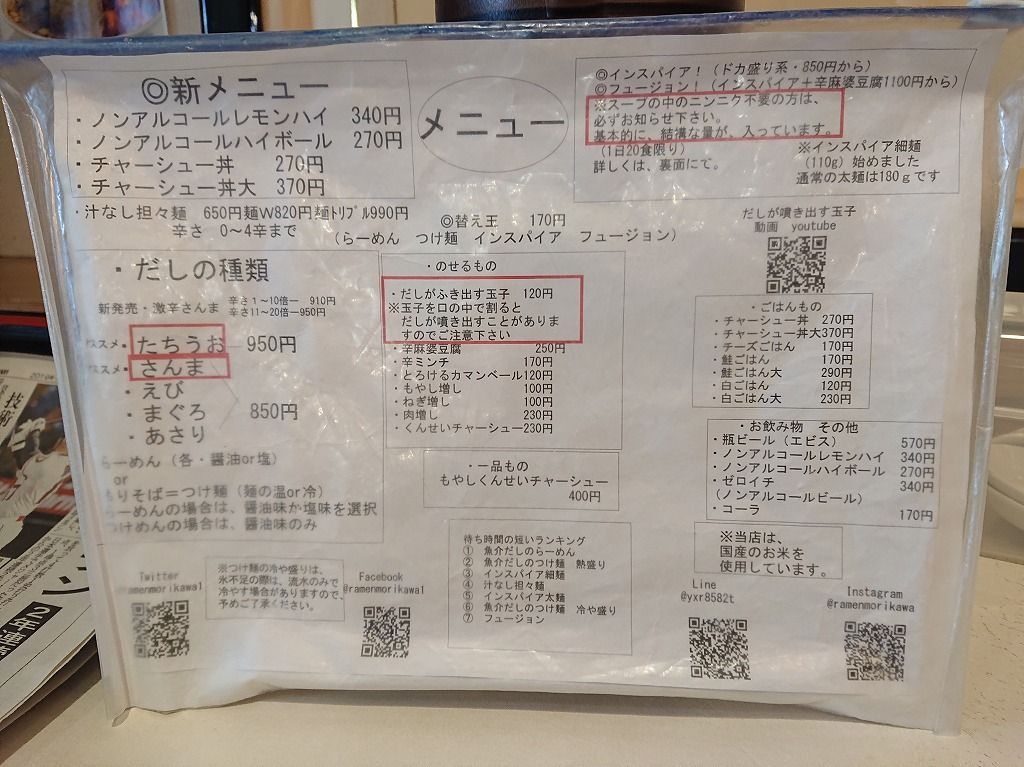 ◎新メニュー
・ノンアルコールレモンハイ 340円
・ノンアルコールハイボール 270円
・チャーシュー丼 270円
・チャーシュー丼大 370円
メニュー
◎インスパイア！（ドカ盛り系・850円から）
◎フュージョン！（インスパイア＋辛麻婆豆腐1100円から）
※スープの中のニンニク不要の方は、
必ずお知らせ下さい。
基本的に、結構な量が、入っています。
（1日20食限り）
詳しくは、裏面にて。
※インスパイア細麺
（110g）始めました
通常の太麺は180ｇです
・汁なし担々麺 650円麺W820円麺ﾄﾘﾌﾟﾙ990円
辛さ 0～4辛まで
◎替え玉 170円
（らーめん つけ麺 インスパイア フュージョン）
・だしの種類
新発売・激辛さんま 辛さ１～10倍― 910円
辛さ11～20倍―950円
ススメ・たちうお 950円
ススメ・さんま
・えび
・まぐろ 850円
・あさり
らーめん（各・醤油or塩）
or
もりそば＝つけ麺（麺の温or冷）
らーめんの場合は、醤油味か塩味を選択
つけめんの場合は、醤油味のみ
・のせるもの
・だしがふき出す玉子 120円
※玉子を口の中で割ると
だしが噴き出すことがありま
すのでご注意下さい
・辛麻婆豆腐 250円
・辛ミンチ 170円
・とろけるカマンベール120円
・もやし増し 100円
・ねぎ増し 100円
・肉増し 230円
・くんせいチャーシュー230円
・一品もの
もやしくんせいチャーシュー
400円
待ち時間の短いランキング
① 魚介だしのらーめん
② 魚介だしのつけ麺 熱盛り
③ インスパイア細麺
④ 汁なし担々麺
⑤ インスパイア太麺
⑥ 魚介だしのつけ麺 冷や盛り
⑦ フュージョン
だしが噴き出す玉子
動画 youtube
・ごはんもの
・チャーシュー丼 270円
・チャーシュー丼大370円
・チーズごはん 170円
・鮭ごはん 170円
・鮭ごはん大 290円
・白ごはん 120円
・白ごはん大 230円
・お飲み物 その他
・瓶ビール（エビス） 570円
・ノンアルコールレモンハイ 340円
・ノンアルコールハイボール 270円
・ゼロイチ 340円
（ノンアルコールビール）
・コーラ 170円
※当店は、
国産のお米を
使用しています。
Twitter
@ramenmorikawa1
※つけ麺の冷や盛りは、
氷不足の際は、流水のみで
冷やす場合がありますので、
予めご了承ください。
Facebook
@ramenmorikawa1
Line
@yxr8582t
Instagram
@ramenmorikawa
技術